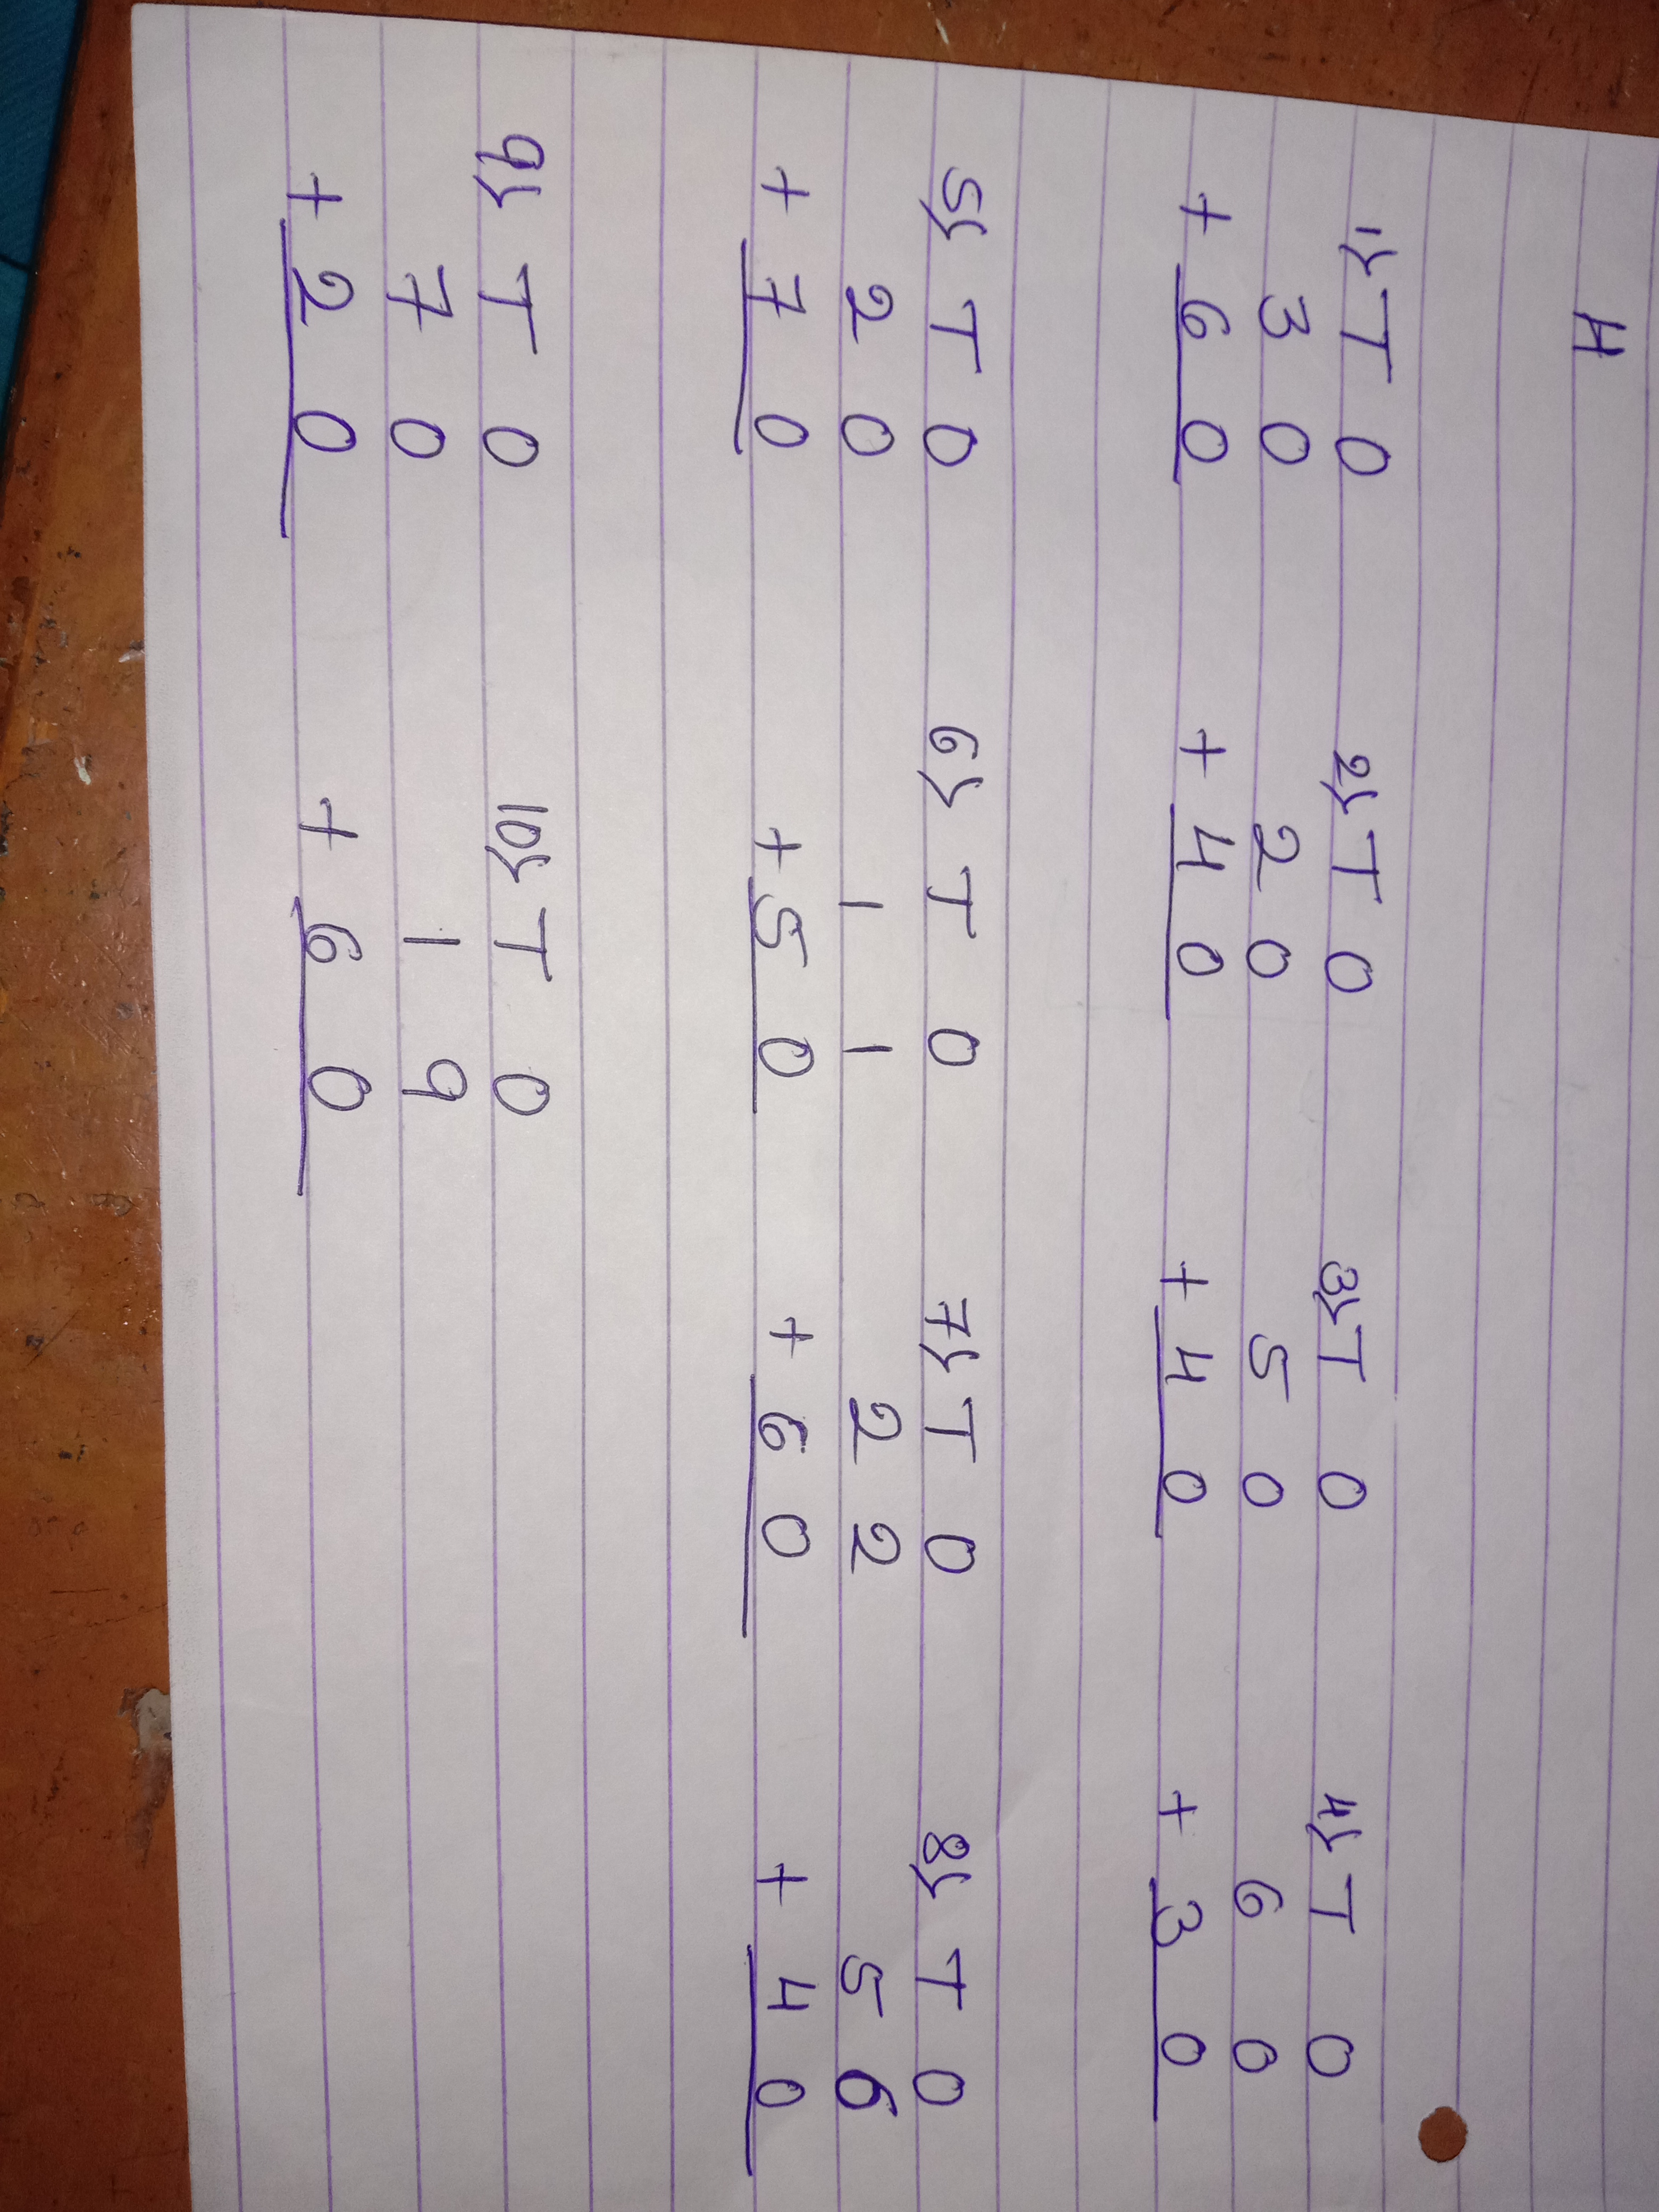 H
1) T 0 2) T 0 3) T 0 4) T 0
3 0 2 0 5 0 6 0
+ 6 0 + 4 0 + 4 0 + 3 0
5) T 0 6) T 0 7) T 0 8) T 0
2 0 1 1 2 2 5 6
+ 7 0 + 5 0 + 6 0 + 4 0
9) T 0 10) T 0
7 0 1 9
+ 2 0 + 6 0